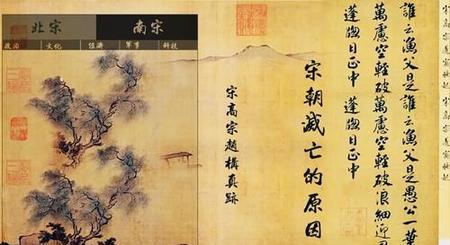 北宋
南宋
政治
文化
经济
军事
科技
誰云漁父是誰云漁父是愚公一葉
萬慮空輕破萬慮空輕破浪細迎
蓬牕日正中 蓬牕日正中
宋朝滅亡的原因
宋高宗趙構真跡